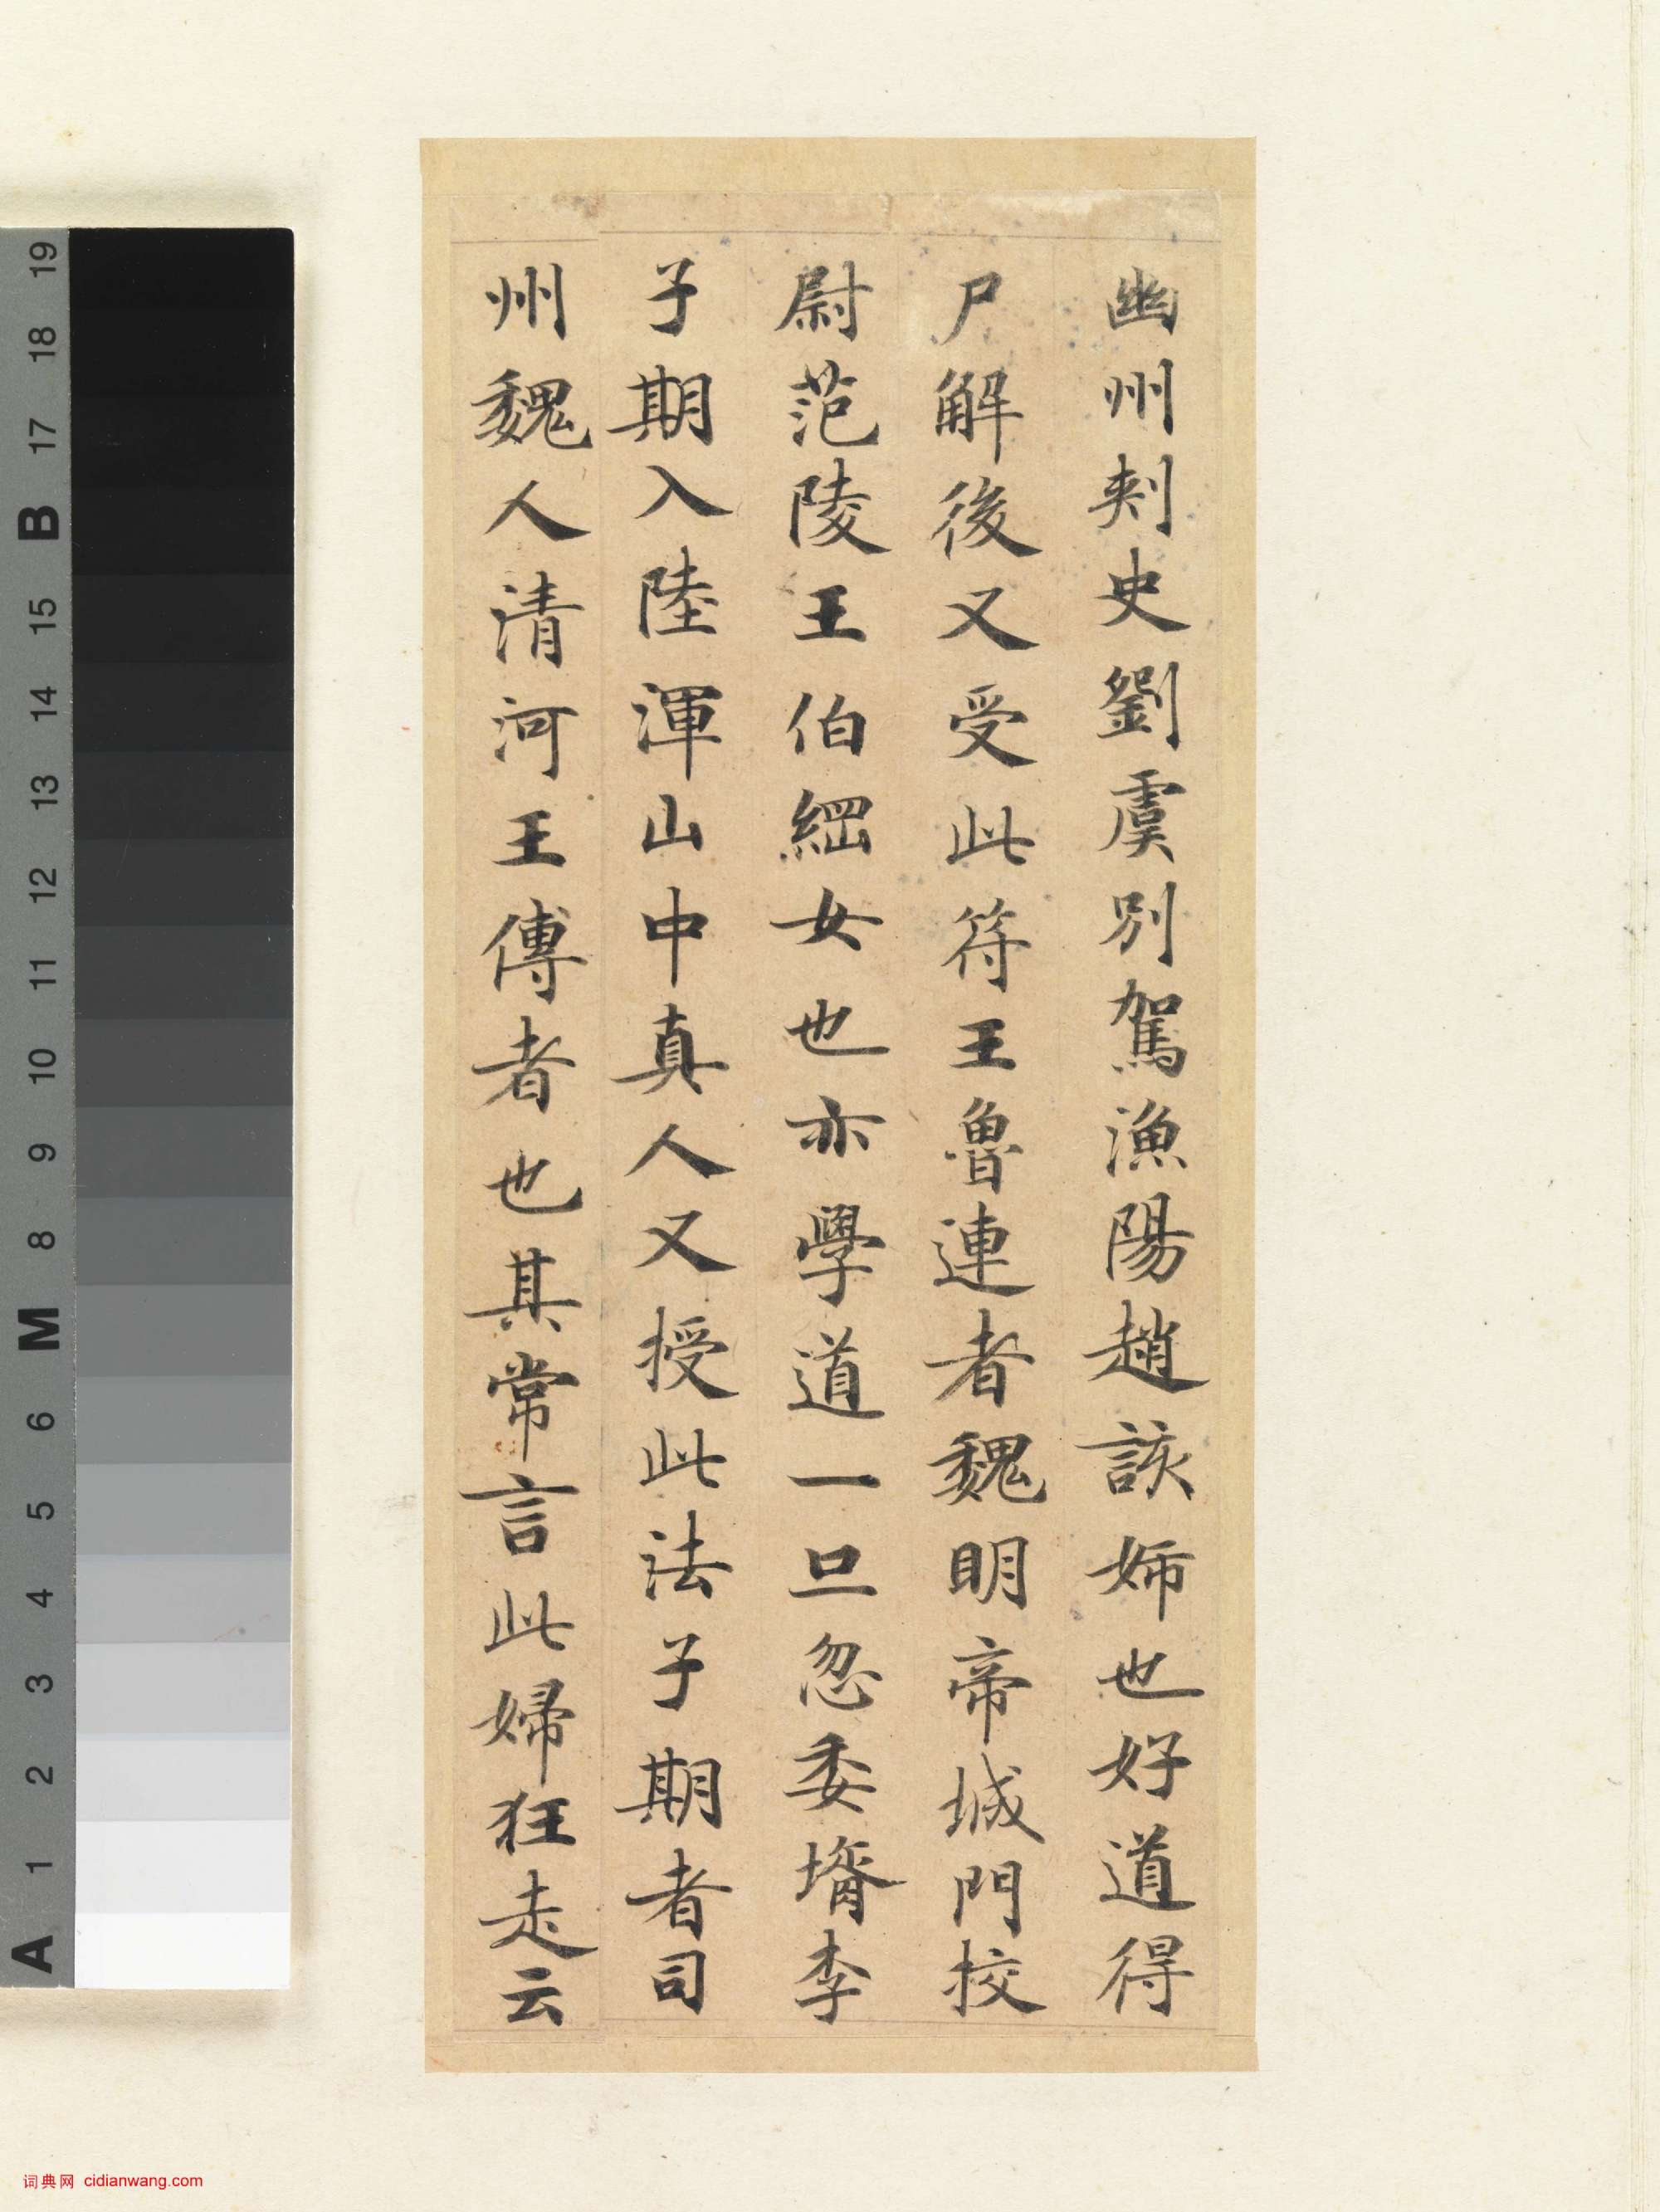 幽州刺史劉虞別駕漁陽趙該姊也好道得
尸解後又受此符王魯連者魏明帝城門校
尉范陵王伯綱女也亦學道一旦忽委壻李
子期入陸渾山中真人又授此法子期者司
州魏人清河王傅者也其常言此婦狂走云
19
18
17
B
15
14
13
12
11
10
9
8
M
6
5
4
3
2
1
A
词典网 cidianwang.com